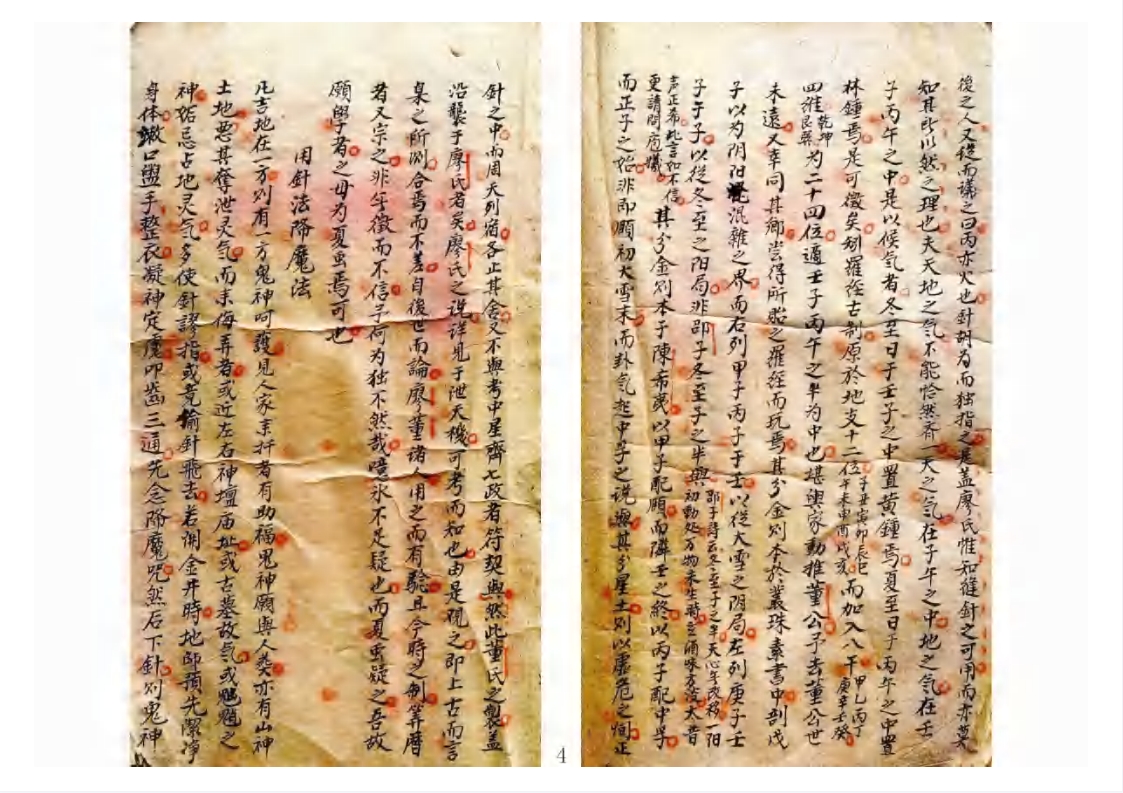 後之人又從而議之曰丙亦火也針胡為而独指之是盖廖氏惟知縫針之可用而亦莫
知其所以然之理也夫天地之气不能恰然齐一天之气在子午之中地之气在壬
子丙午之中是以候气者冬至日于壬子之中置黄鍾焉夏至日于丙午之中置
林鍾焉是可徵矣矧羅経古制原於地支十二位子丑寅卯辰巳午未申酉戌亥而加入八干甲乙丙丁庚辛壬癸
四维乾坤艮巽为二十四位適壬子丙午之半为中也堪輿家動推董公予去董公世
未遠又幸同其鄉尝得所貽之羅経而玩焉其分金则本於叢珠素書中剖戊
子以为阴阳混雜之界而右列甲子丙子于壬以從大雪之阴局左列庚子壬
子于子以從冬至之阳局非邵子冬至子之半與邵子诗云冬至子之半天心年改移一阳初動処万物未生時玄酒味方淡太音
声正希此言如不信更請問庖犧其分金则本子陳希夷以甲子配頤而隣壬之終以丙子配中孚
而正子之始非即頤初大雪末而卦气起中孚之说與其分星土则以虚危之间正
針之中而周天列宿各止其舍又不與考中星齊七政者符契與然此董氏之製盖
沿襲于廖氏者矣廖氏之说详见于泄天機可考而知也由是观之即上古而言
臬之所测合焉而不差自後世而論廖董诸人用之而有驗且今時之制筭曆
者又宗之非年徵而不信予何为独不然哉噫氷不足疑也而夏虫疑之吾故
願學者之毋为夏虫焉可也
用針法降魔法
凡吉地在一方列有一方鬼神呵護見人家来扦者有助福鬼神願與人类亦有山神
土地悪其奪泄灵气而来侮弄者或近左右神壇庙址或古墓故气或魍魎之
神妬忌占地灵气多使針謬指或竟偷針飛去若測金井時地師預先潔净
身体漱口盥手整衣凝神定魔叩齒三通先念降魔咒然后下針则鬼神
4